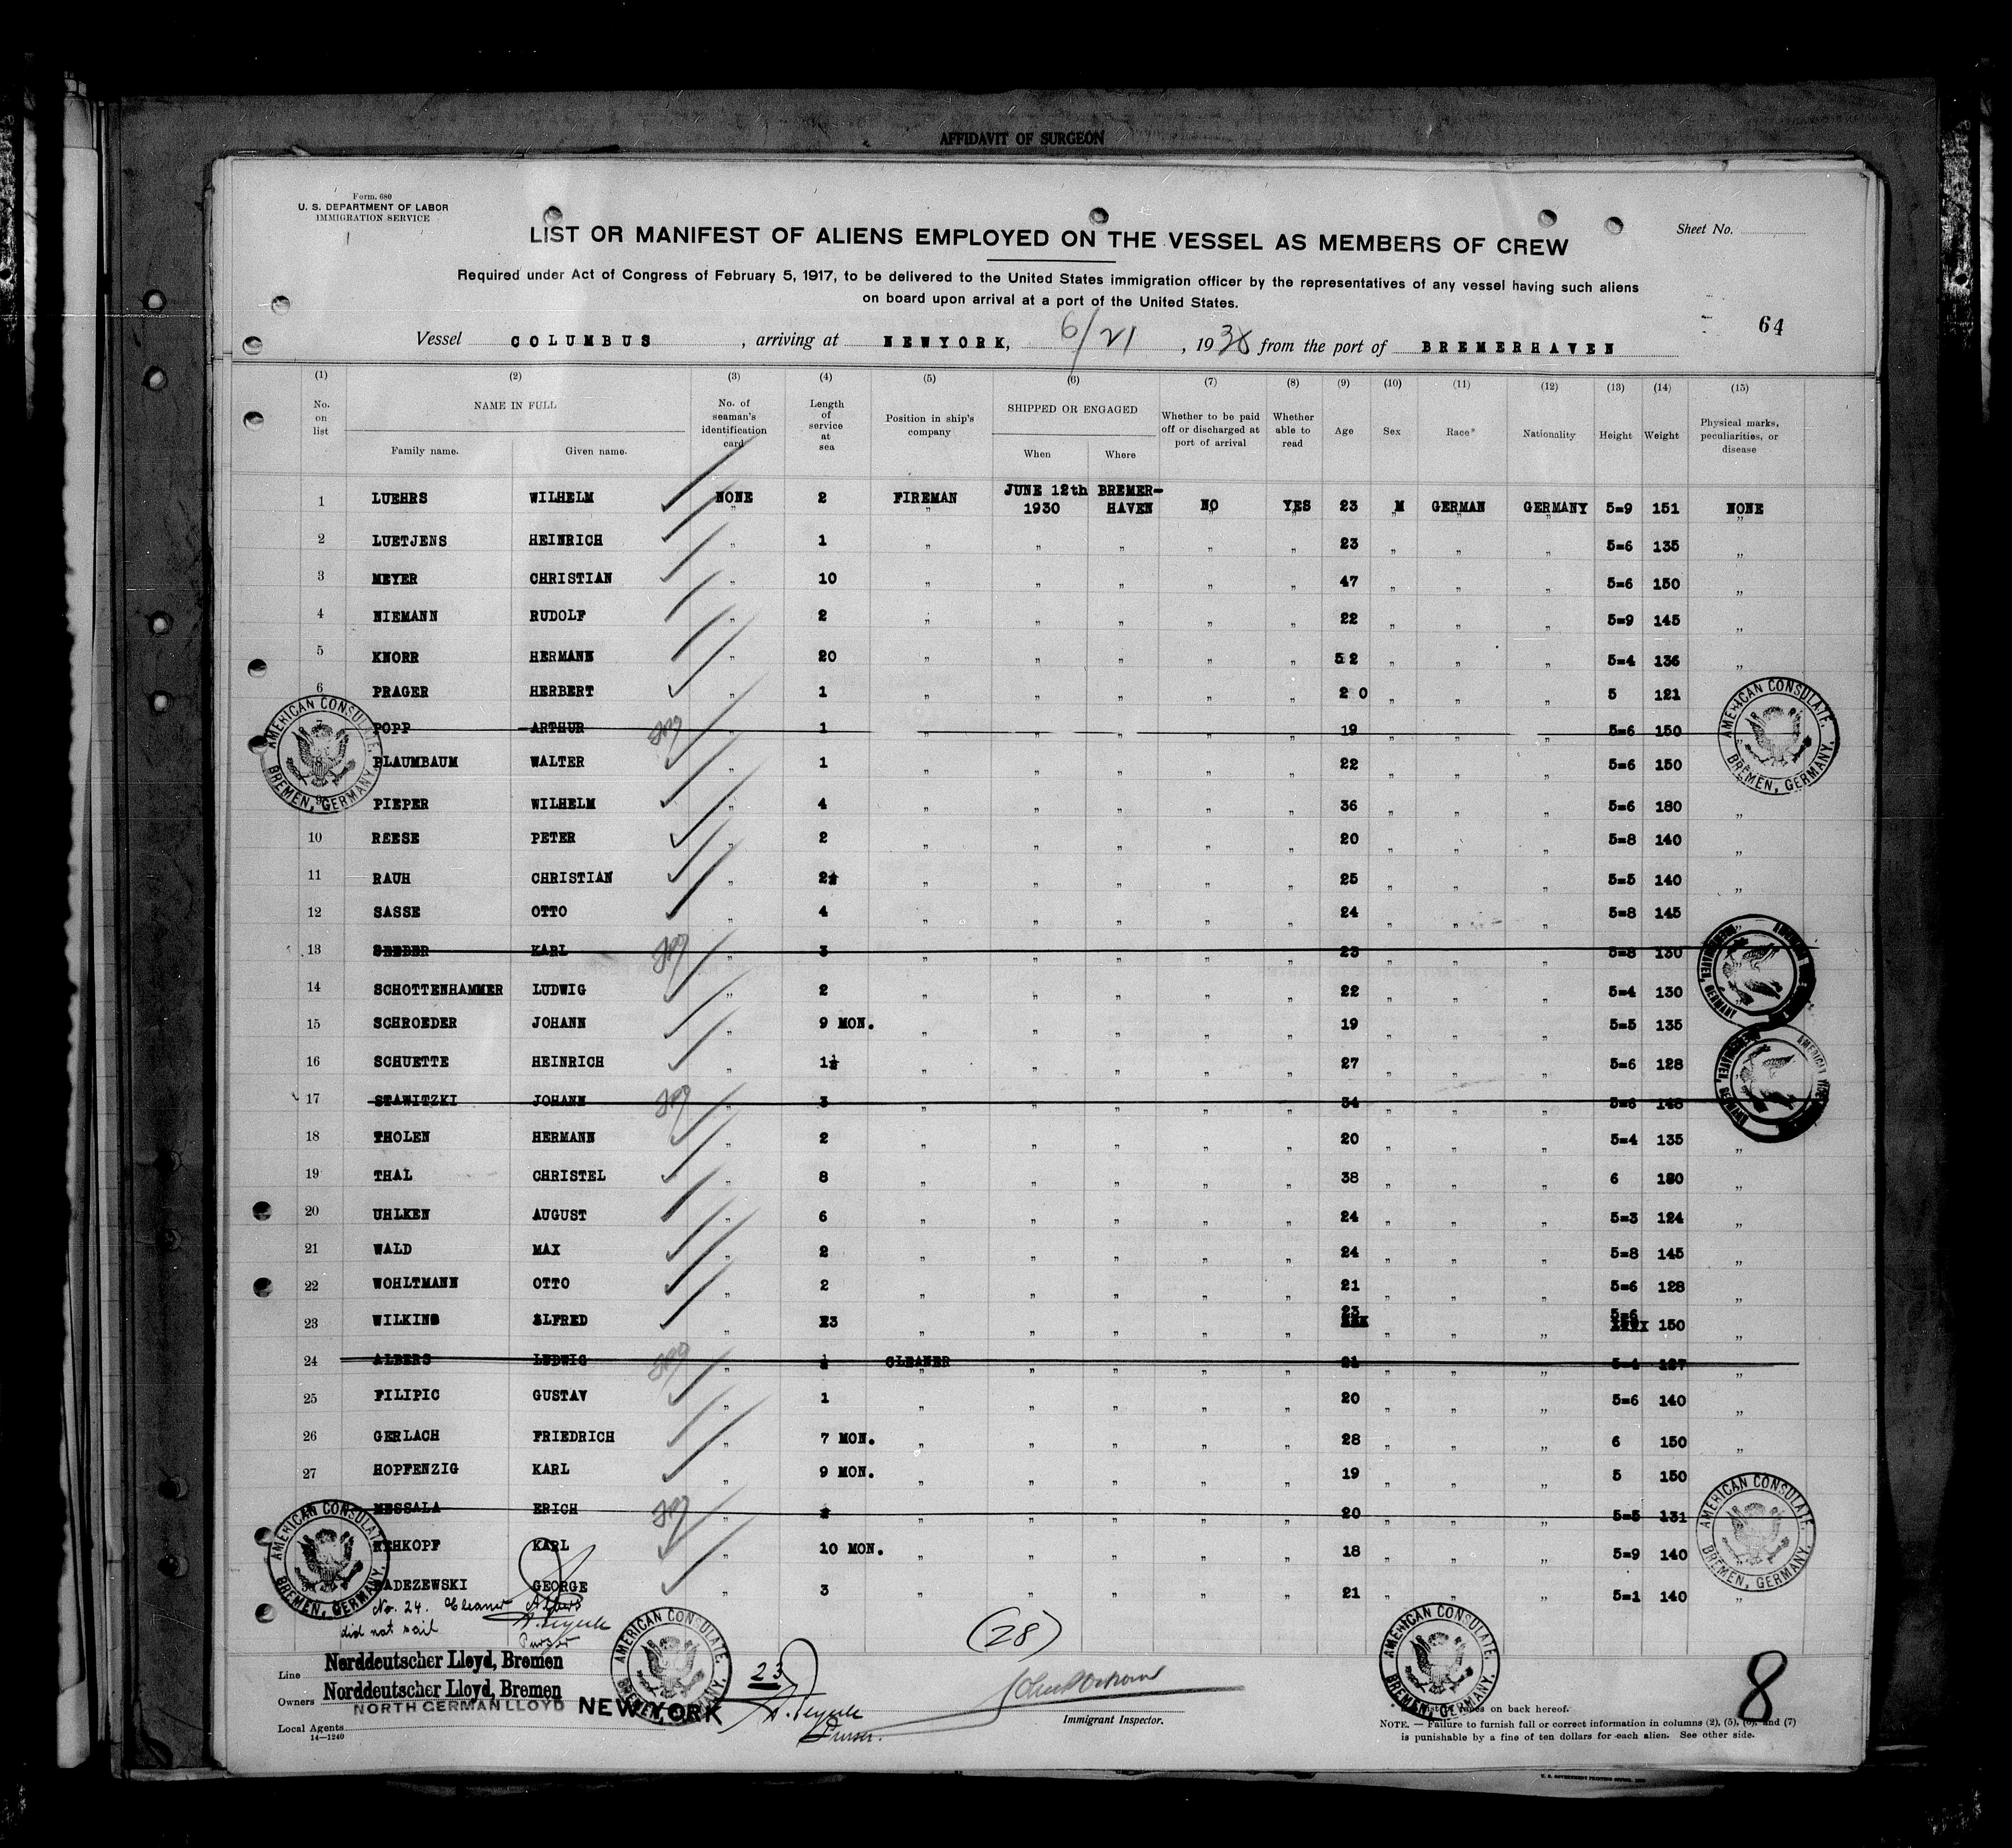 AFFIDAVIT OF SURGEON
Form. 680
U. S. DEPARTMENT OF LABOR
IMMIGRATION SERVICE
Sheet No.
LIST OR MANIFEST OF ALIENS EMPLOYED ON THE VESSEL AS MEMBERS OF CREW
Required under Act of Congress of February 5, 1917, to be delivered to the United States immigration officer by the representatives of any vessel having such aliens
on board upon arrival at a port of the United States.
64
Vessel COLUMBUS , arriving at NEWYORK, 6/21 , 1930 from the port of BREMERHAVEN
(1) (2) (3) (4) (5) (6) (7) (8) (9) (10) (11) (12) (13) (14) (15)
No. on list NAME IN FULL Family name. Given name. No. of seaman's identification card Length of service at sea Position in ship's company SHIPPED OR ENGAGED When Where Whether to be paid off or discharged at port of arrival Whether able to read Age Sex Race* Nationality Height Weight Physical marks, peculiarities, or disease
1 LUEHRS WILHELM NONE 2 FIREMAN JUNE 12th 1930 BREMER-HAVEN NO YES 23 M GERMAN GERMANY 5=9 151 NONE
2 LUETJENS HEINRICH " 1 " " " " " 23 " " " 5=6 135 "
3 MEYER CHRISTIAN " 10 " " " " " 47 " " " 5=6 150 "
4 NIEMANN RUDOLF " 2 " " " " " 22 " " " 5=9 145 "
5 KNORR HERMANN " 20 " " " " " 52 " " " 5=4 136 "
6 PRAGER HERBERT " 1 " " " " " 20 " " " 5 121
7 POPP ARTHUR " 1 " " " " " 19 " " " 5=6 150
PLAUMBAUM WALTER " 1 " " " " " 22 " " " 5=6 150
9 PIEPER WILHELM " 4 " " " " " 36 " " " 5=6 180 "
10 REESE PETER " 2 " " " " " 20 " " " 5=8 140 "
11 RAUH CHRISTIAN " 2½ " " " " " 25 " " " 5=5 140 "
12 SASSE OTTO " 4 " " " " " 24 " " " 5=8 145
13 SEEDER KARL " 3 " " " " " 23 " " " 5=8 130
14 SCHOTTENHAMMER LUDWIG " 2 " " " " " 22 " " " 5=4 130
15 SCHROEDER JOHANN " 9 MON. " " " " " 19 " " " 5=5 135
16 SCHUETTE HEINRICH " 1½ " " " " " 27 " " " 5=6 128
17 STAWITZKI JOHANN " 3 " " " " " 34 " " " 5=6 148
18 THOLEN HERMANN " 2 " " " " " 20 " " " 5=4 135 "
19 THAL CHRISTEL " 8 " " " " " 38 " " " 6 180 "
20 UHLKEN AUGUST " 6 " " " " " 24 " " " 5=3 124 "
21 WALD MAX " 2 " " " " " 24 " " " 5=8 145 "
22 WOHLTMANN OTTO " 2 " " " " " 21 " " " 5=6 128 "
23 WILKINS ALFRED " 23 " " " " " 23 " " " 5=6 150 "
24 ALBERS LUDWIG " ½ CLEANER " " " " 21 " " " 5=4 127 "
25 FILIPIC GUSTAV " 1 " " " " " 20 " " " 5=6 140 "
26 GERLACH FRIEDRICH " 7 MON. " " " " " 28 " " " 6 150 "
27 HOPFENZIG KARL " 9 MON. " " " " " 19 " " " 5 150
MESSALA ERICH " " " " " " 20 " " " 5=5 131
REHKOPF KARL " 10 MON. " " " " " 18 " " " 5=9 140
RADEZEWSKI GEORGE " 3 " " " " " 21 " " " 5=1 140 "
No. 24. Cleaner Albers
did not sail
Purser
(28)
23
AMERICAN CONSULATE. BREMEN, GERMANY.
AMERICAN CONSULATE. BREMEN, GERMANY.
AMERICAN CONSULATE. BREMEN, GERMANY.
AMERICAN CONSULATE. BREMEN, GERMANY.
AMERICAN CONSULATE. BREMEN, GERMANY.
AMERICAN CONSULATE. BREMEN, GERMANY.
Line Norddeutscher Lloyd, Bremen
Owners Norddeutscher Lloyd, Bremen
NORTH GERMAN LLOYD NEW YORK
Local Agents
14—1240
Purser.
Immigrant Inspector.
8
on back hereof.
NOTE. — Failure to furnish full or correct information in columns (2), (5), (6), and (7)
is punishable by a fine of ten dollars for each alien. See other side.